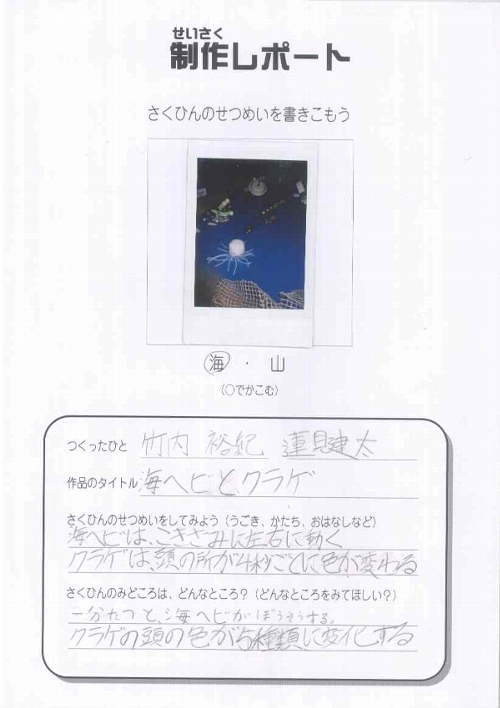 せいさく
制作レポート
さくひんのせつめいを書きこもう
海 ・ 山
(○でかこむ)
つくったひと 竹内 裕紀 蓮見建太
作品のタイトル 海ヘビと、クラゲ
さくひんのせつめいをしてみよう(うごき、かたち、おはなしなど)
海ヘビは、こきざみに左右に動く
クラゲは、頭の所が4秒ごとに色が変わる
さくひんのみどころは、どんなところ?(どんなところをみてほしい?)
一分たつと、海ヘビがぼうそうする。
クラゲの頭の色が5種類に変化する